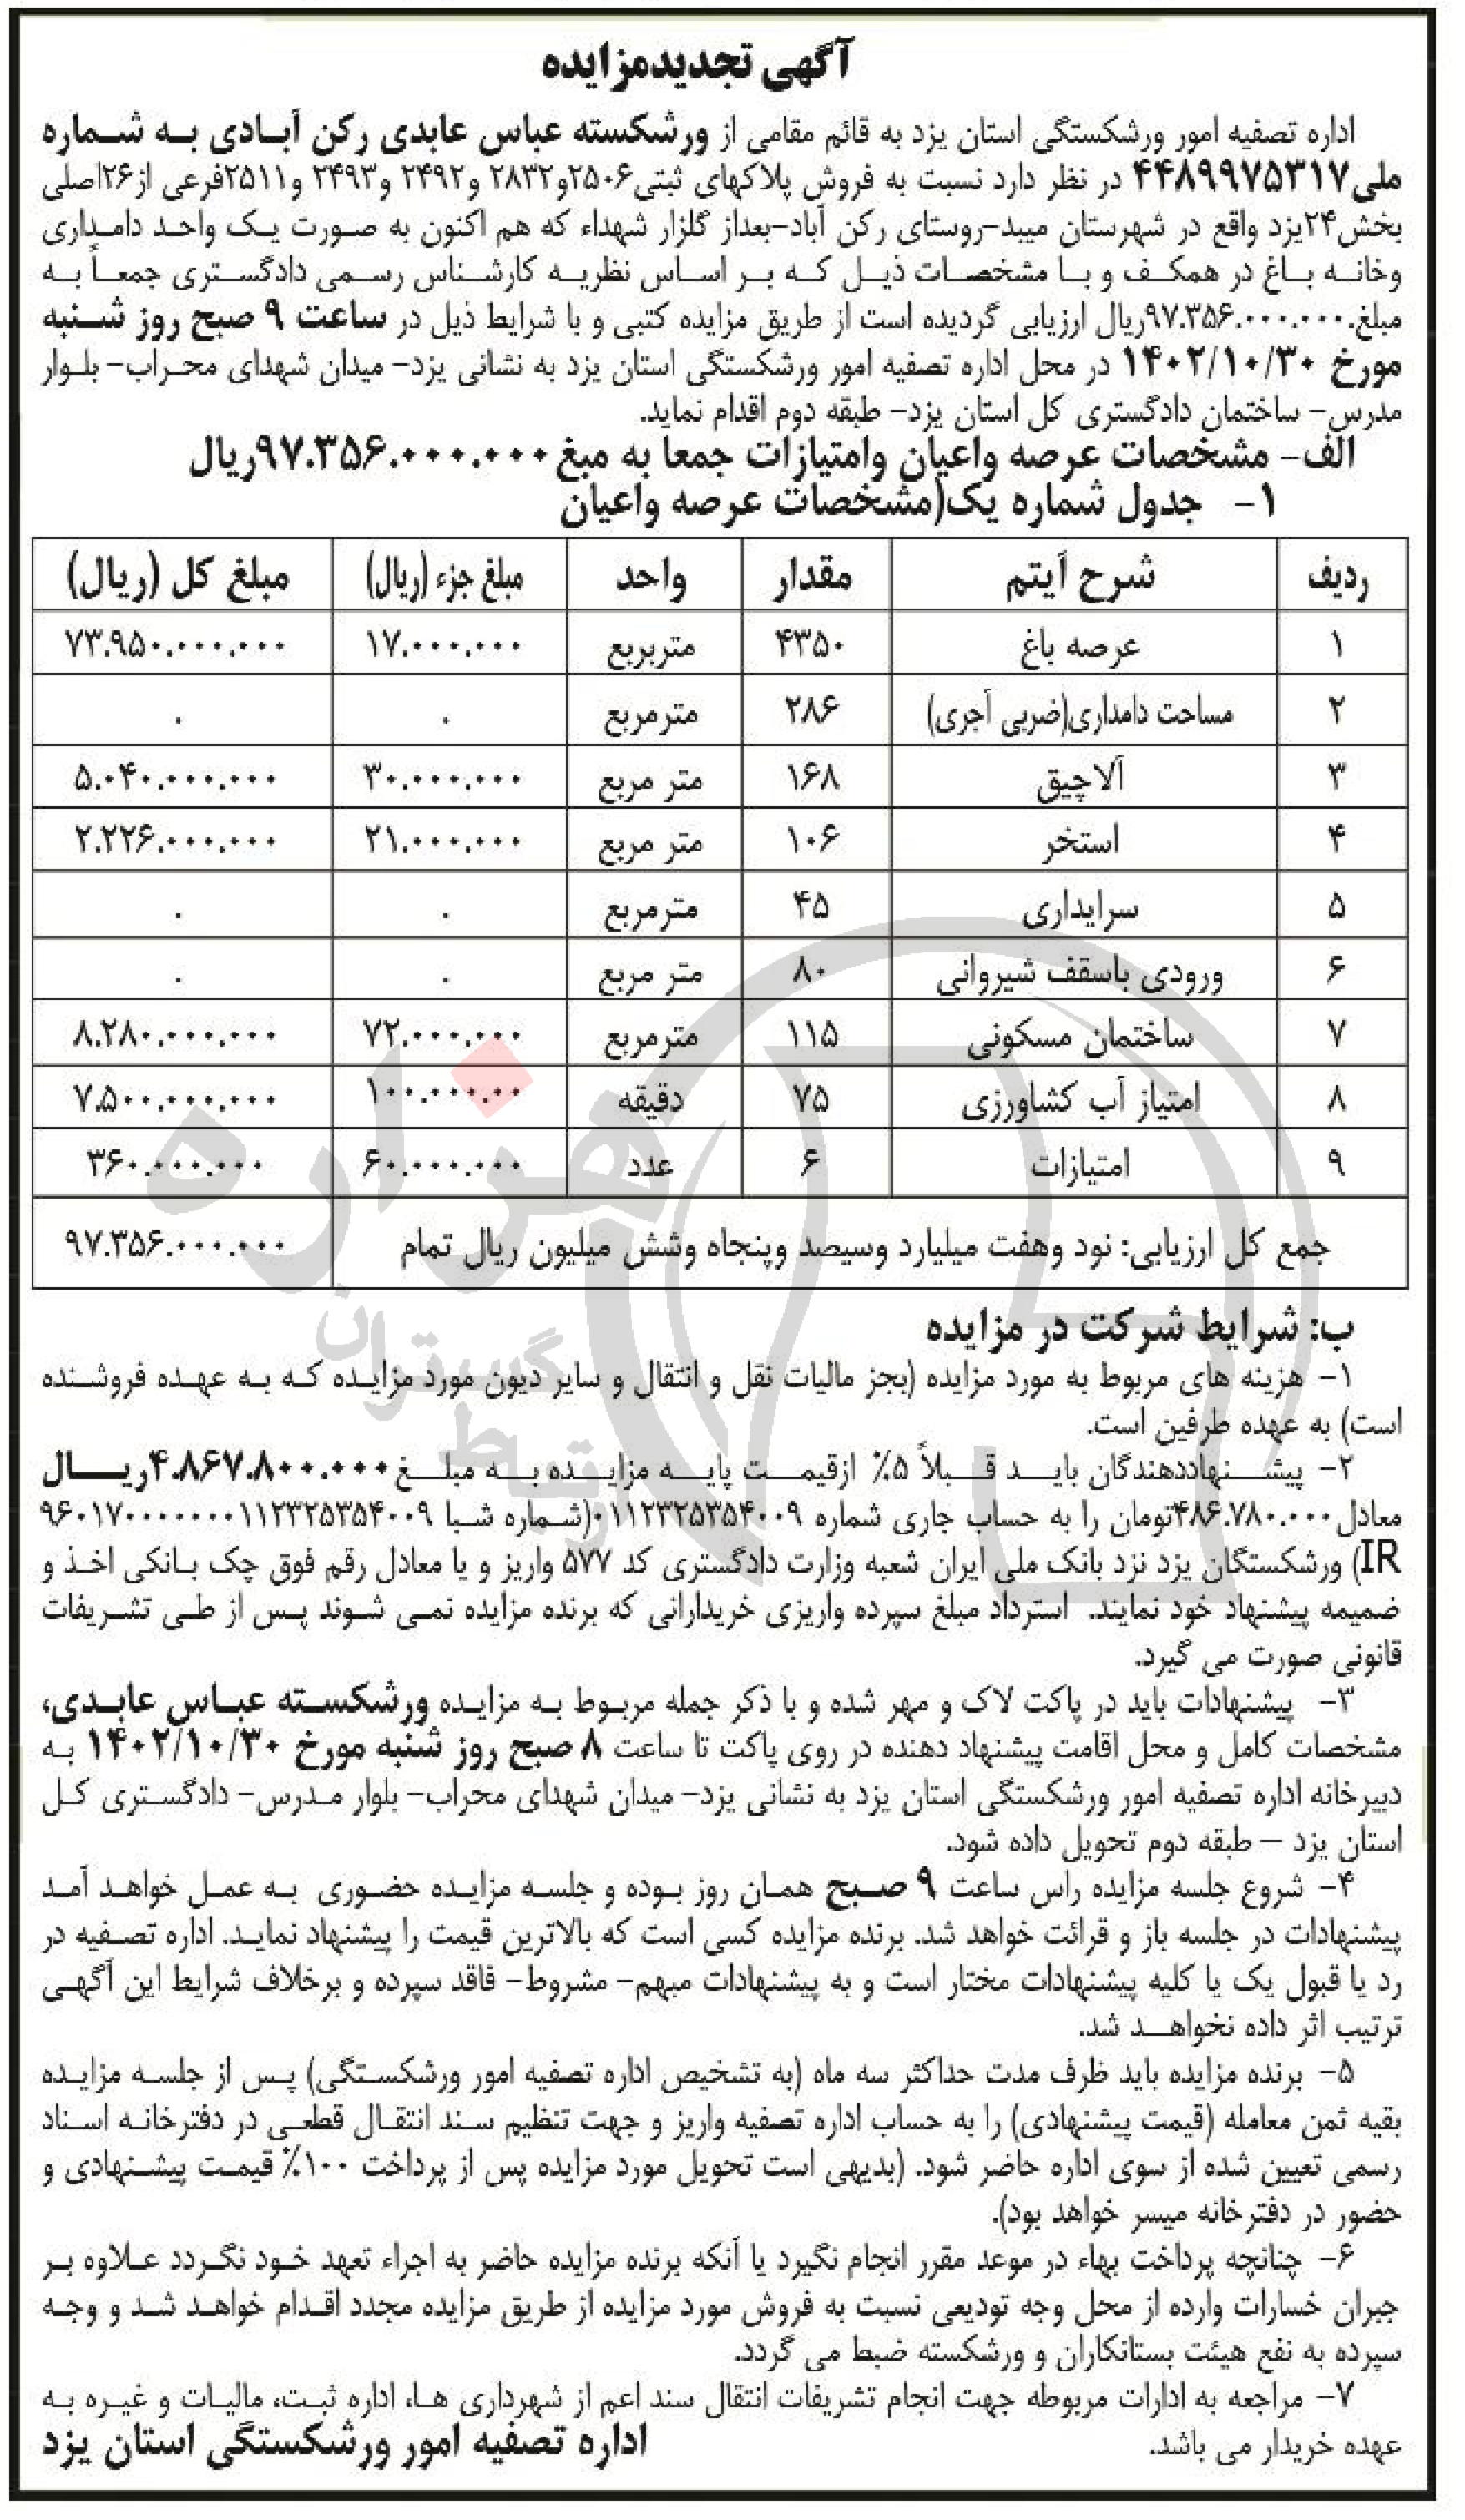 آگهی تجدیدمزایده
اداره تصفیه امور ورشکستگی استان یزد به قائم مقامی از ورشکسته عباس عابدی رکن آبادی به شماره
ملی۴۴۸۹۹۷۵۳۱۷ در نظر دارد نسبت به فروش پلاکهای ثبتی۲۵۰۶و۲۸۳۲ و۲۴۹۲ و۲۴۹۳ و۲۵۱۱فرعی از۲۶اصلی
بخش۲۴یزد واقع در شهرستان میبد-روستای رکن آباد-بعداز گلزار شهداء که هم اکنون به صورت یک واحد دامداری
وخانه باغ در همکف و با مشخصات ذیل که بر اساس نظریه کارشناس رسمی دادگستری جمعاً به
مبلغ۹۷.۳۵۶.۰۰۰.۰۰۰ریال ارزیابی گردیده است از طریق مزایده کتبی و با شرایط ذیل در ساعت ۹ صبح روز شنبه
مورخ ۱۴۰۲/۱۰/۳۰ در محل اداره تصفیه امور ورشکستگی استان یزد به نشانی یزد- میدان شهدای محراب- بلوار
مدرس- ساختمان دادگستری کل استان یزد- طبقه دوم اقدام نماید.
الف- مشخصات عرصه واعیان وامتیازات جمعا به مبغ ۹۷.۳۵۶.۰۰۰.۰۰۰ریال
۱- جدول شماره یک(مشخصات عرصه واعیان
ردیف شرح آیتم مقدار واحد مبلغ جزء (ریال) مبلغ کل (ریال)
۱ عرصه باغ ۴۳۵۰ متربربع ۱۷.۰۰۰.۰۰۰ ۷۳.۹۵۰.۰۰۰.۰۰۰
۲ مساحت دامداری(ضربی آجری) ۲۸۶ مترمربع ۰ ۰
۳ آلاچیق ۱۶۸ متر مربع ۳۰.۰۰۰.۰۰۰ ۵.۰۴۰.۰۰۰.۰۰۰
۴ استخر ۱۰۶ متر مربع ۲۱.۰۰۰.۰۰۰ ۲.۲۲۶.۰۰۰.۰۰۰
۵ سرایداری ۴۵ مترمربع ۰ ۰
۶ ورودی باسقف شیروانی ۸۰ متر مربع ۰ ۰
۷ ساختمان مسکونی ۱۱۵ مترمربع ۷۲.۰۰۰.۰۰۰ ۸.۲۸۰.۰۰۰.۰۰۰
۸ امتیاز آب کشاورزی ۷۵ دقیقه ۱۰۰.۰۰۰.۰۰ ۷.۵۰۰.۰۰۰.۰۰۰
۹ امتیازات ۶ عدد ۶۰.۰۰۰.۰۰۰ ۳۶۰.۰۰۰.۰۰۰
جمع کل ارزیابی: نود وهفت میلیارد وسیصد وپنجاه وشش میلیون ریال تمام ۹۷.۳۵۶.۰۰۰.۰۰۰
ب: شرایط شرکت در مزایده
۱- هزینه های مربوط به مورد مزایده (بجز مالیات نقل و انتقال و سایر دیون مورد مزایده که به عهده فروشنده
است) به عهده طرفین است.
۲- پیشنهاددهندگان باید قبلاً ۵٪ ازقیمت پایه مزایده به مبلغ ۴.۸۶۷.۸۰۰.۰۰۰ریال
معادل ۴۸۶.۷۸۰.۰۰۰تومان را به حساب جاری شماره ۰۱۱۲۳۲۵۳۵۴۰۰۹(شماره شبا ۹۶۰۱۷۰۰۰۰۰۰۰۱۱۲۳۲۵۳۵۴۰۰۹
IR) ورشکستگان یزد نزد بانک ملی ایران شعبه وزارت دادگستری کد ۵۷۷ واریز و یا معادل رقم فوق چک بانکی اخذ و
ضمیمه پیشنهاد خود نمایند. استرداد مبلغ سپرده واریزی خریدارانی که برنده مزایده نمی شوند پس از طی تشریفات
قانونی صورت می گیرد.
۳- پیشنهادات باید در پاکت لاک و مهر شده و با ذکر جمله مربوط به مزایده ورشکسته عباس عابدی،
مشخصات کامل و محل اقامت پیشنهاد دهنده در روی پاکت تا ساعت ۸ صبح روز شنبه مورخ ۱۴۰۲/۱۰/۳۰ به
دبیرخانه اداره تصفیه امور ورشکستگی استان یزد به نشانی یزد- میدان شهدای محراب- بلوار مدرس- دادگستری کل
استان یزد – طبقه دوم تحویل داده شود.
۴- شروع جلسه مزایده راس ساعت ۹ صبح همان روز بوده و جلسه مزایده حضوری به عمل خواهد آمد
پیشنهادات در جلسه باز و قرائت خواهد شد. برنده مزایده کسی است که بالاترین قیمت را پیشنهاد نماید. اداره تصفیه در
رد یا قبول یک یا کلیه پیشنهادات مختار است و به پیشنهادات مبهم- مشروط- فاقد سپرده و برخلاف شرایط این آگهی
ترتیب اثر داده نخواهد شد.
۵- برنده مزایده باید ظرف مدت حداکثر سه ماه (به تشخیص اداره تصفیه امور ورشکستگی) پس از جلسه مزایده
بقیه ثمن معامله (قیمت پیشنهادی) را به حساب اداره تصفیه واریز و جهت تنظیم سند انتقال قطعی در دفترخانه اسناد
رسمی تعیین شده از سوی اداره حاضر شود. (بدیهی است تحویل مورد مزایده پس از پرداخت ۱۰۰٪ قیمت پیشنهادی و
حضور در دفترخانه میسر خواهد بود).
۶- چنانچه پرداخت بهاء در موعد مقرر انجام نگیرد یا آنکه برنده مزایده حاضر به اجراء تعهد خود نگردد علاوه بر
جبران خسارات وارده از محل وجه تودیعی نسبت به فروش مورد مزایده از طریق مزایده مجدد اقدام خواهد شد و وجه
سپرده به نفع هیئت بستانکاران و ورشکسته ضبط می گردد.
۷- مراجعه به ادارات مربوطه جهت انجام تشریفات انتقال سند اعم از شهرداری ها، اداره ثبت، مالیات و غیره به
عهده خریدار می باشد.
اداره تصفیه امور ورشکستگی استان یزد
هزاره
گستران
ارتباط